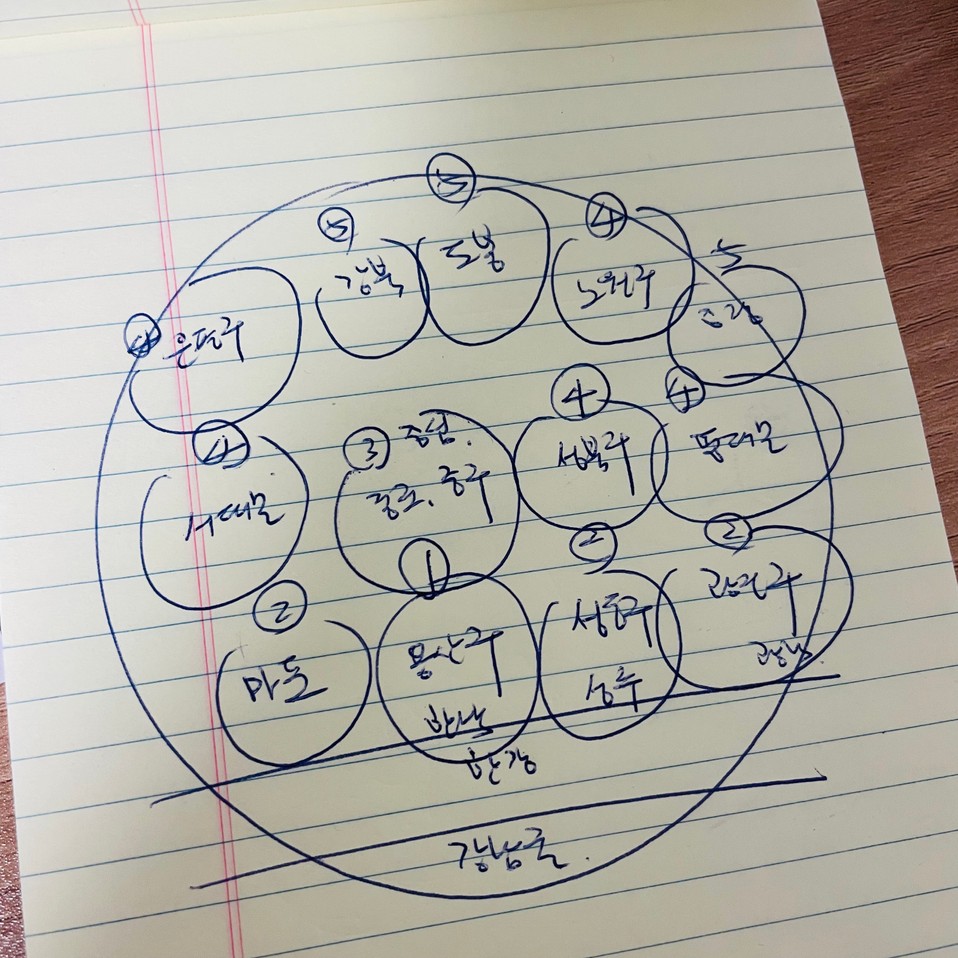 ⑤
⑤
④
강북
도봉
노원구
5
중랑
④
은평구
④
서대문
③
중심.
종로, 중구
④
성북구
④
동대문
②
마포
①
용산구
한남
②
성동구
성수
②
광진구
광장.
한강
강남권.